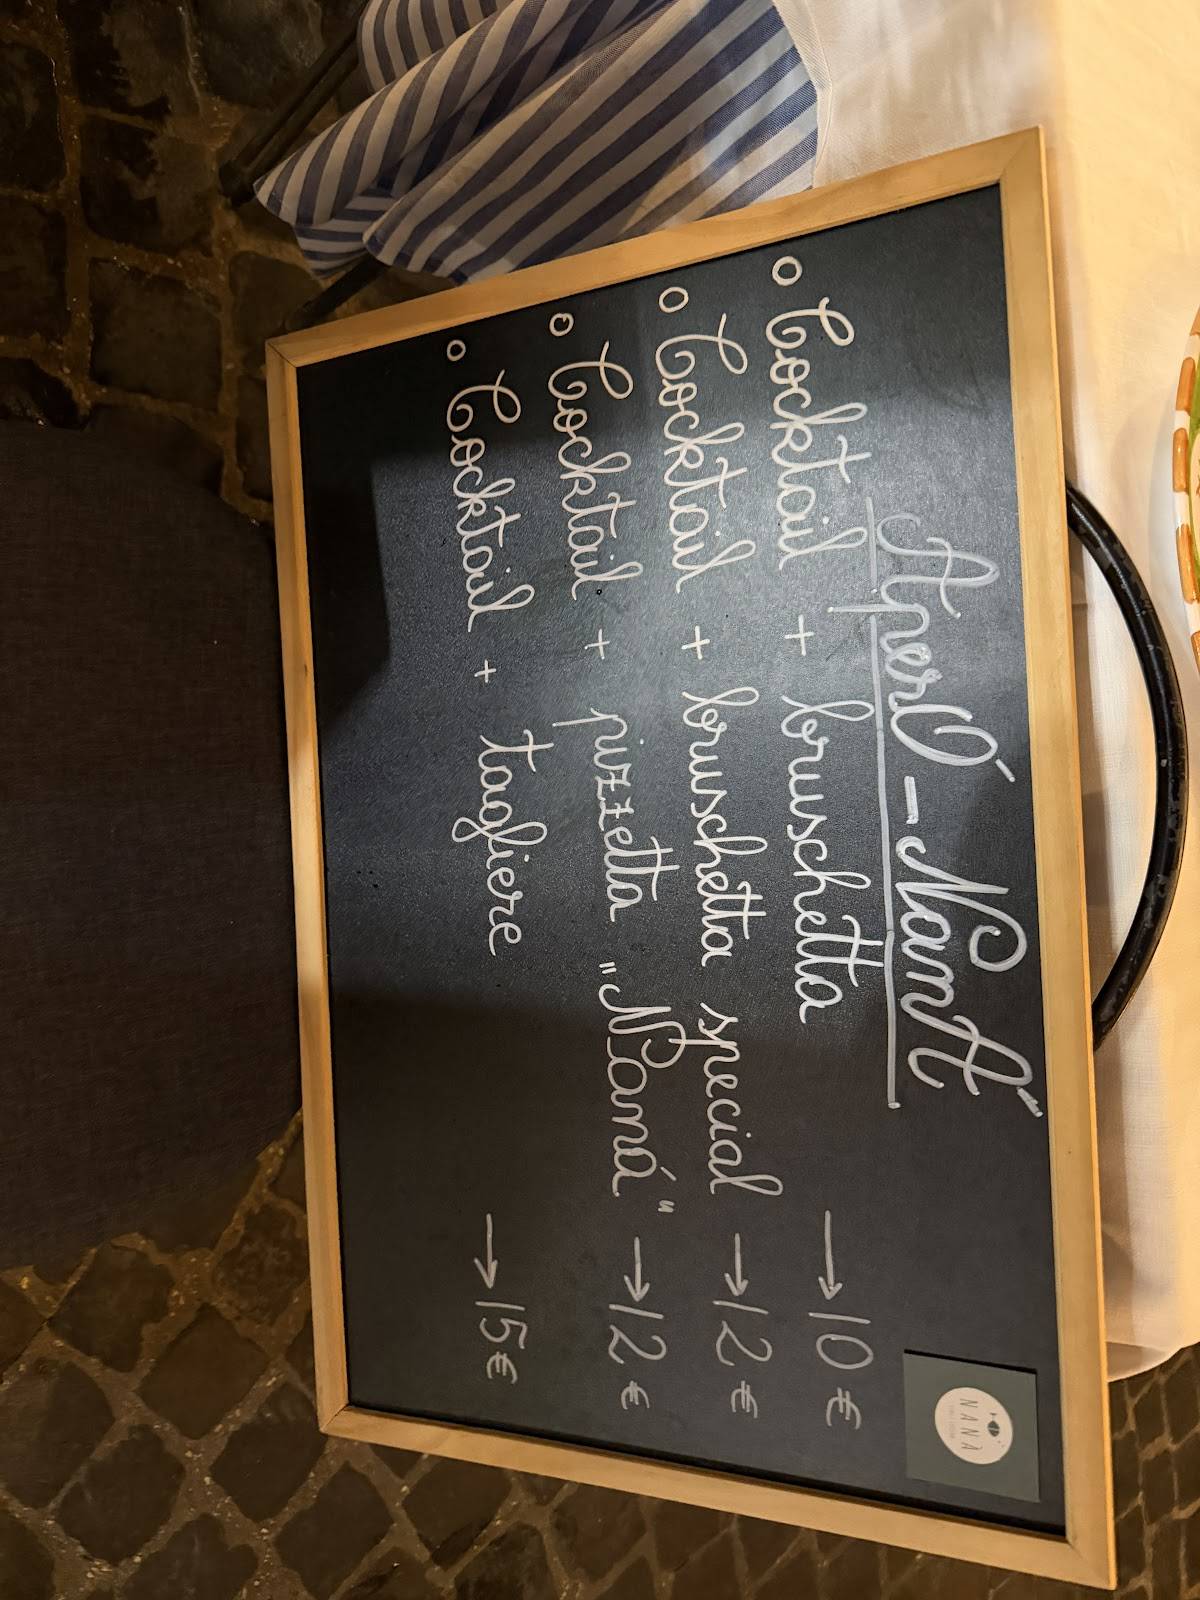 AperÓ-NanÁ
NANÀ
o Cocktail + bruschetta → 10 €
o Cocktail + bruschetta special → 12 €
o Cocktail + pizzetta "Naná" → 12 €
o Cocktail + tagliere → 15 €